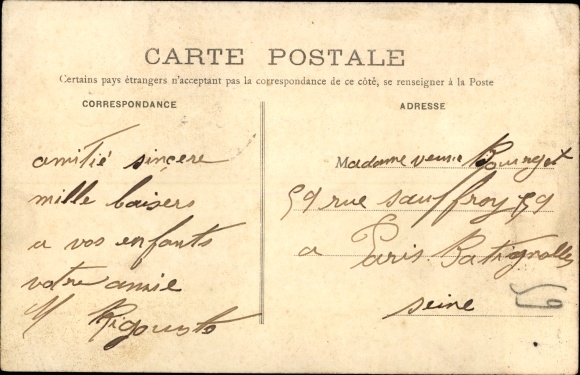 CARTE POSTALE
Certains pays étrangers n'acceptant pas la correspondance de ce côté, se renseigner à la Poste
CORRESPONDANCE
amitié sincère
mille baisers
a vos enfants
votre amie
ADRESSE
Madame veuve
59 rue sauffroy 59
a Paris Batignolles
seine